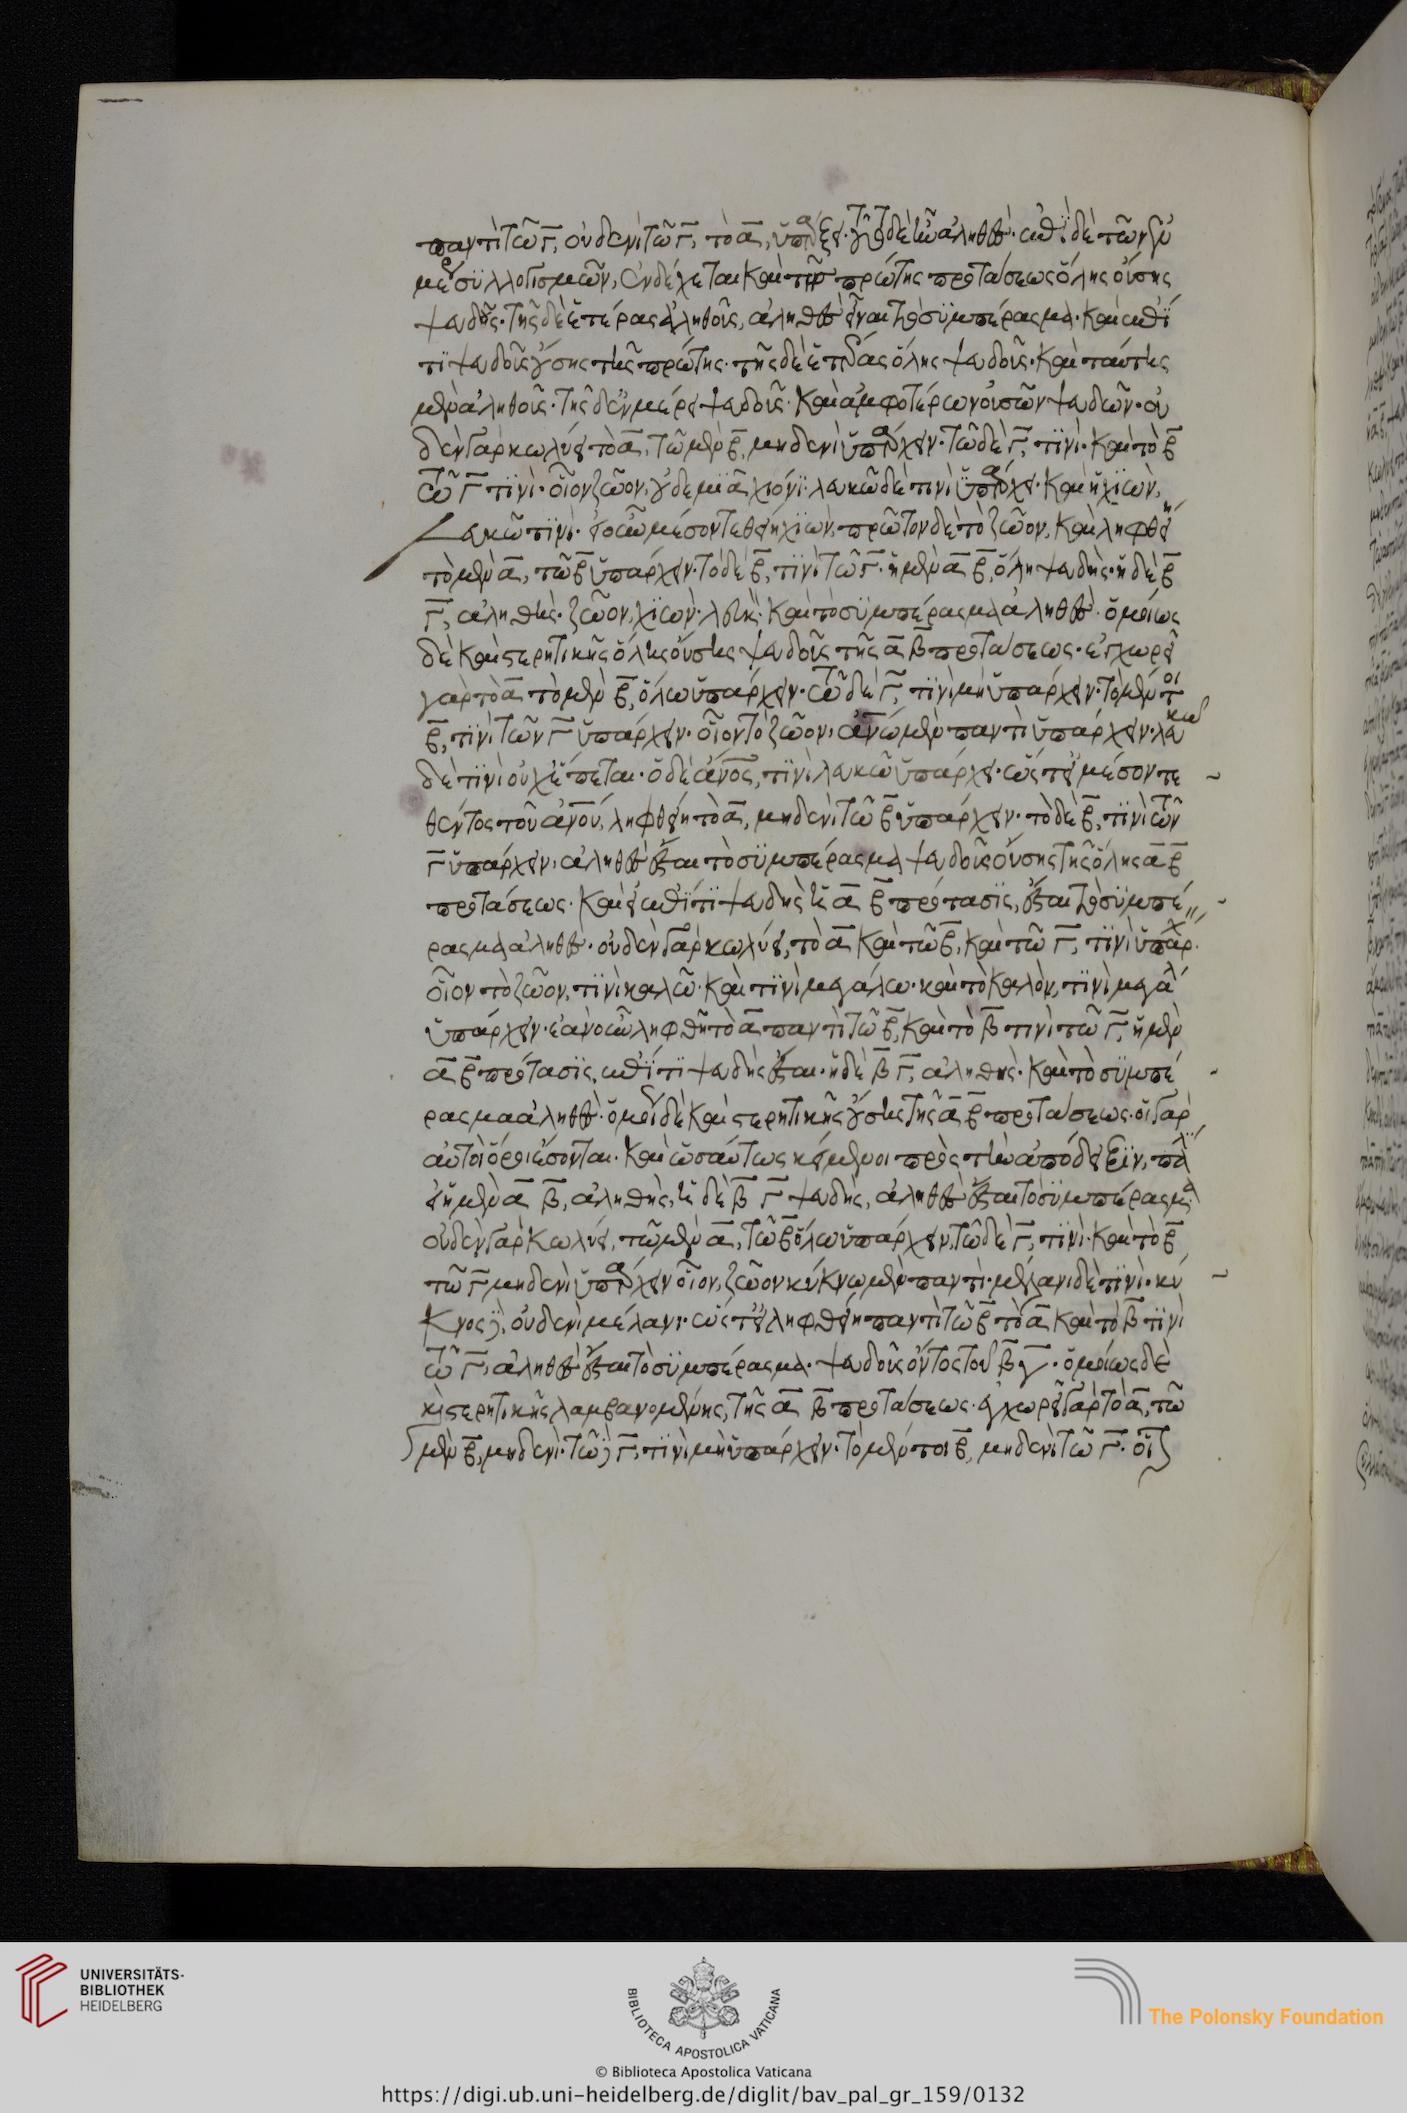 παντὶ τῶ Γ, οὐδενὶ τῶ Γ, τὸ α, ὑπάρξει· τοῦτο δὲ ἦν ἀληθὲς· ἐπὶ δὲ τῶν ἐν
μέρει συλλογισμῶν, ἐνδέχεται καὶ τῆς πρώτης προτάσεως ὅλης οὔσης
ψευδοῦς· τῆς δὲ ἑτέρας ἀληθοῦς, ἀληθὲς εἶναι τὸ συμπέρασμα· καὶ ἐπί
τι ψευδοῦς οὔσης τῆς πρώτης· τῆς δὲ ἑτέρας ὅλης ψευδοῦς· καὶ ταύτης
μὲν ἀληθοῦς· τῆς δ' ἐν μέρει ψευδοῦς· καὶ ἀμφοτέρων οὐσῶν ψευδῶν· οὐ
δὲν γὰρ κωλύει τὸ α, τῶ μὲν β, μηδενὶ ὑπάρχειν· τῶ δὲ Γ, τινί· καὶ τὸ β
τῶ Γ τινὶ· οἷον ζῶον, οὐδεμιᾶ χιόνι· λευκῶ δὲ τινὶ ὑπάρχει· καὶ ἡ χιὼν,
λευκῶ τινί· εἰ οὖν μέσον τεθείη χιὼν, πρῶτον δὲ τὸ ζῶον, καὶ ληφθείη
τὸ μὲν α, τῶ β ὑπάρχειν· τὸ δὲ β, τινὶ τῶ Γ· ἡ μὲν α β, ὅλη ψευδὴς· ἡ δὲ β
Γ, ἀληθὴς· ζῶον, χιὼν· λευκὸν· καὶ τὸ συμπέρασμα ἀληθὲς· ὁμοίως
δὲ καὶ στερητικῆς ὅλης οὔσης ψευδοῦς τῆς α β προτάσεως· ἐγχωρεῖ
γὰρ τὸ α τὸ μὲν β, ὅλω ὑπάρχειν· τῶ δὲ Γ, τινὶ μὴ ὑπάρχειν· τὸ μέντοι
β, τινὶ τῶν Γ ὑπάρχειν· οἷον τὸ ζῶον, ἀνω μὲν παντὶ ὑπάρχειν· λευκῶ
δὲ τινὶ οὐχ ἕπεται· ὁ δὲ ἀνος, τινὶ λευκῶ ὑπάρχει· ὥστ' εἰ μέσον τε
θέντος τοῦ ἀνου, ληφθείη τὸ α, μηδενὶ τῶ β ὑπάρχειν· τὸ δὲ β, τινὶ τῶν
Γ ὑπάρχειν, ἀληθὲς ἔσται τὸ συμπέρασμα ψευδοῦς οὔσης τῆς ὅλης α β
προτάσεως· καὶ εἰ ἐπί τι ψευδὴς ἡ α β πρότασις, ἔσται τὸ συμπέ
ρασμα ἀληθὲς· οὐδὲν γὰρ κωλύει, τὸ α καὶ τῶ β, καὶ τῶ Γ, τινὶ ὑπάρχ.
οἷον τὸ ζῶον, τινὶ καλῶ· καὶ τινὶ μεγάλω· καὶ τὸ καλὸν, τινὶ μεγάλ
ὑπάρχειν· ἐὰν οὖν ληφθῆ τὸ α παντὶ τῶ β, καὶ τὸ β τινὶ τῶ Γ, ἡ μὲν
α β πρότασις, ἐπί τι ψευδὴς ἔσται· ἡ δὲ β Γ, ἀληθὴς· καὶ τὸ συμπέ
ρασμα ἀληθὲς· ὁμοί δὲ καὶ στερητικῆς οὔσης τῆς α β προτάσεως· οἱ γὰρ
αὐτοὶ ὅροι ἔσονται· καὶ ὡσαύτως κείμενοι πρὸς τὴν ἀπόδειξιν, πάλι
εἰ ἡ μὲν α β, ἀληθὴς, ἡ δὲ β Γ ψευδὴς, ἀληθὲς ἔσται τὸ συμπέρασμα
οὐδὲν γὰρ κωλύει, τῶ μὲν α, τῶ β ὅλω ὑπάρχειν, τῶ δὲ Γ, τινί· καὶ τὸ β
τῶ Γ μηδενὶ ὑπάρχειν οἷον, ζῶον κύκνω μὲν παντὶ· μέλανι δὲ τινὶ· κύ
κνος δὲ, οὐδενὶ μέλανι· ὥστ' εἰ ληφθείη παντὶ τῶ β τὸ α καὶ τὸ β τινὶ
τῶ Γ, ἀληθὲς ἔσται τὸ συμπέρασμα· ψευδοῦς ὄντος τοῦ β γ· ὁμοίως δὲ
κὶ στερητικῆς λαμβανομένης, τῆς α β προτάσεως· ἐγχωρεῖ γὰρ τὸ α, τῶ
μὲν β, μηδενὶ· τῶ δὲ Γ, τινὶ μὴ ὑπάρχειν· τὸ μέντοι β, μηδενὶ τῶ Γ· οἷ
UNIVERSITÄTS-
BIBLIOTHEK
HEIDELBERG
BIBLIOTECA APOSTOLICA VATICANA
The Polonsky Foundation
© Biblioteca Apostolica Vaticana
https://digi.ub.uni-heidelberg.de/diglit/bav_pal_gr_159/0132